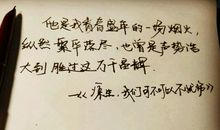 他是我青春盛年的一场烟火，
纵然繁华落尽，也曾是声势浩
大到胜过万千星辉
我们可不可以不忧伤》